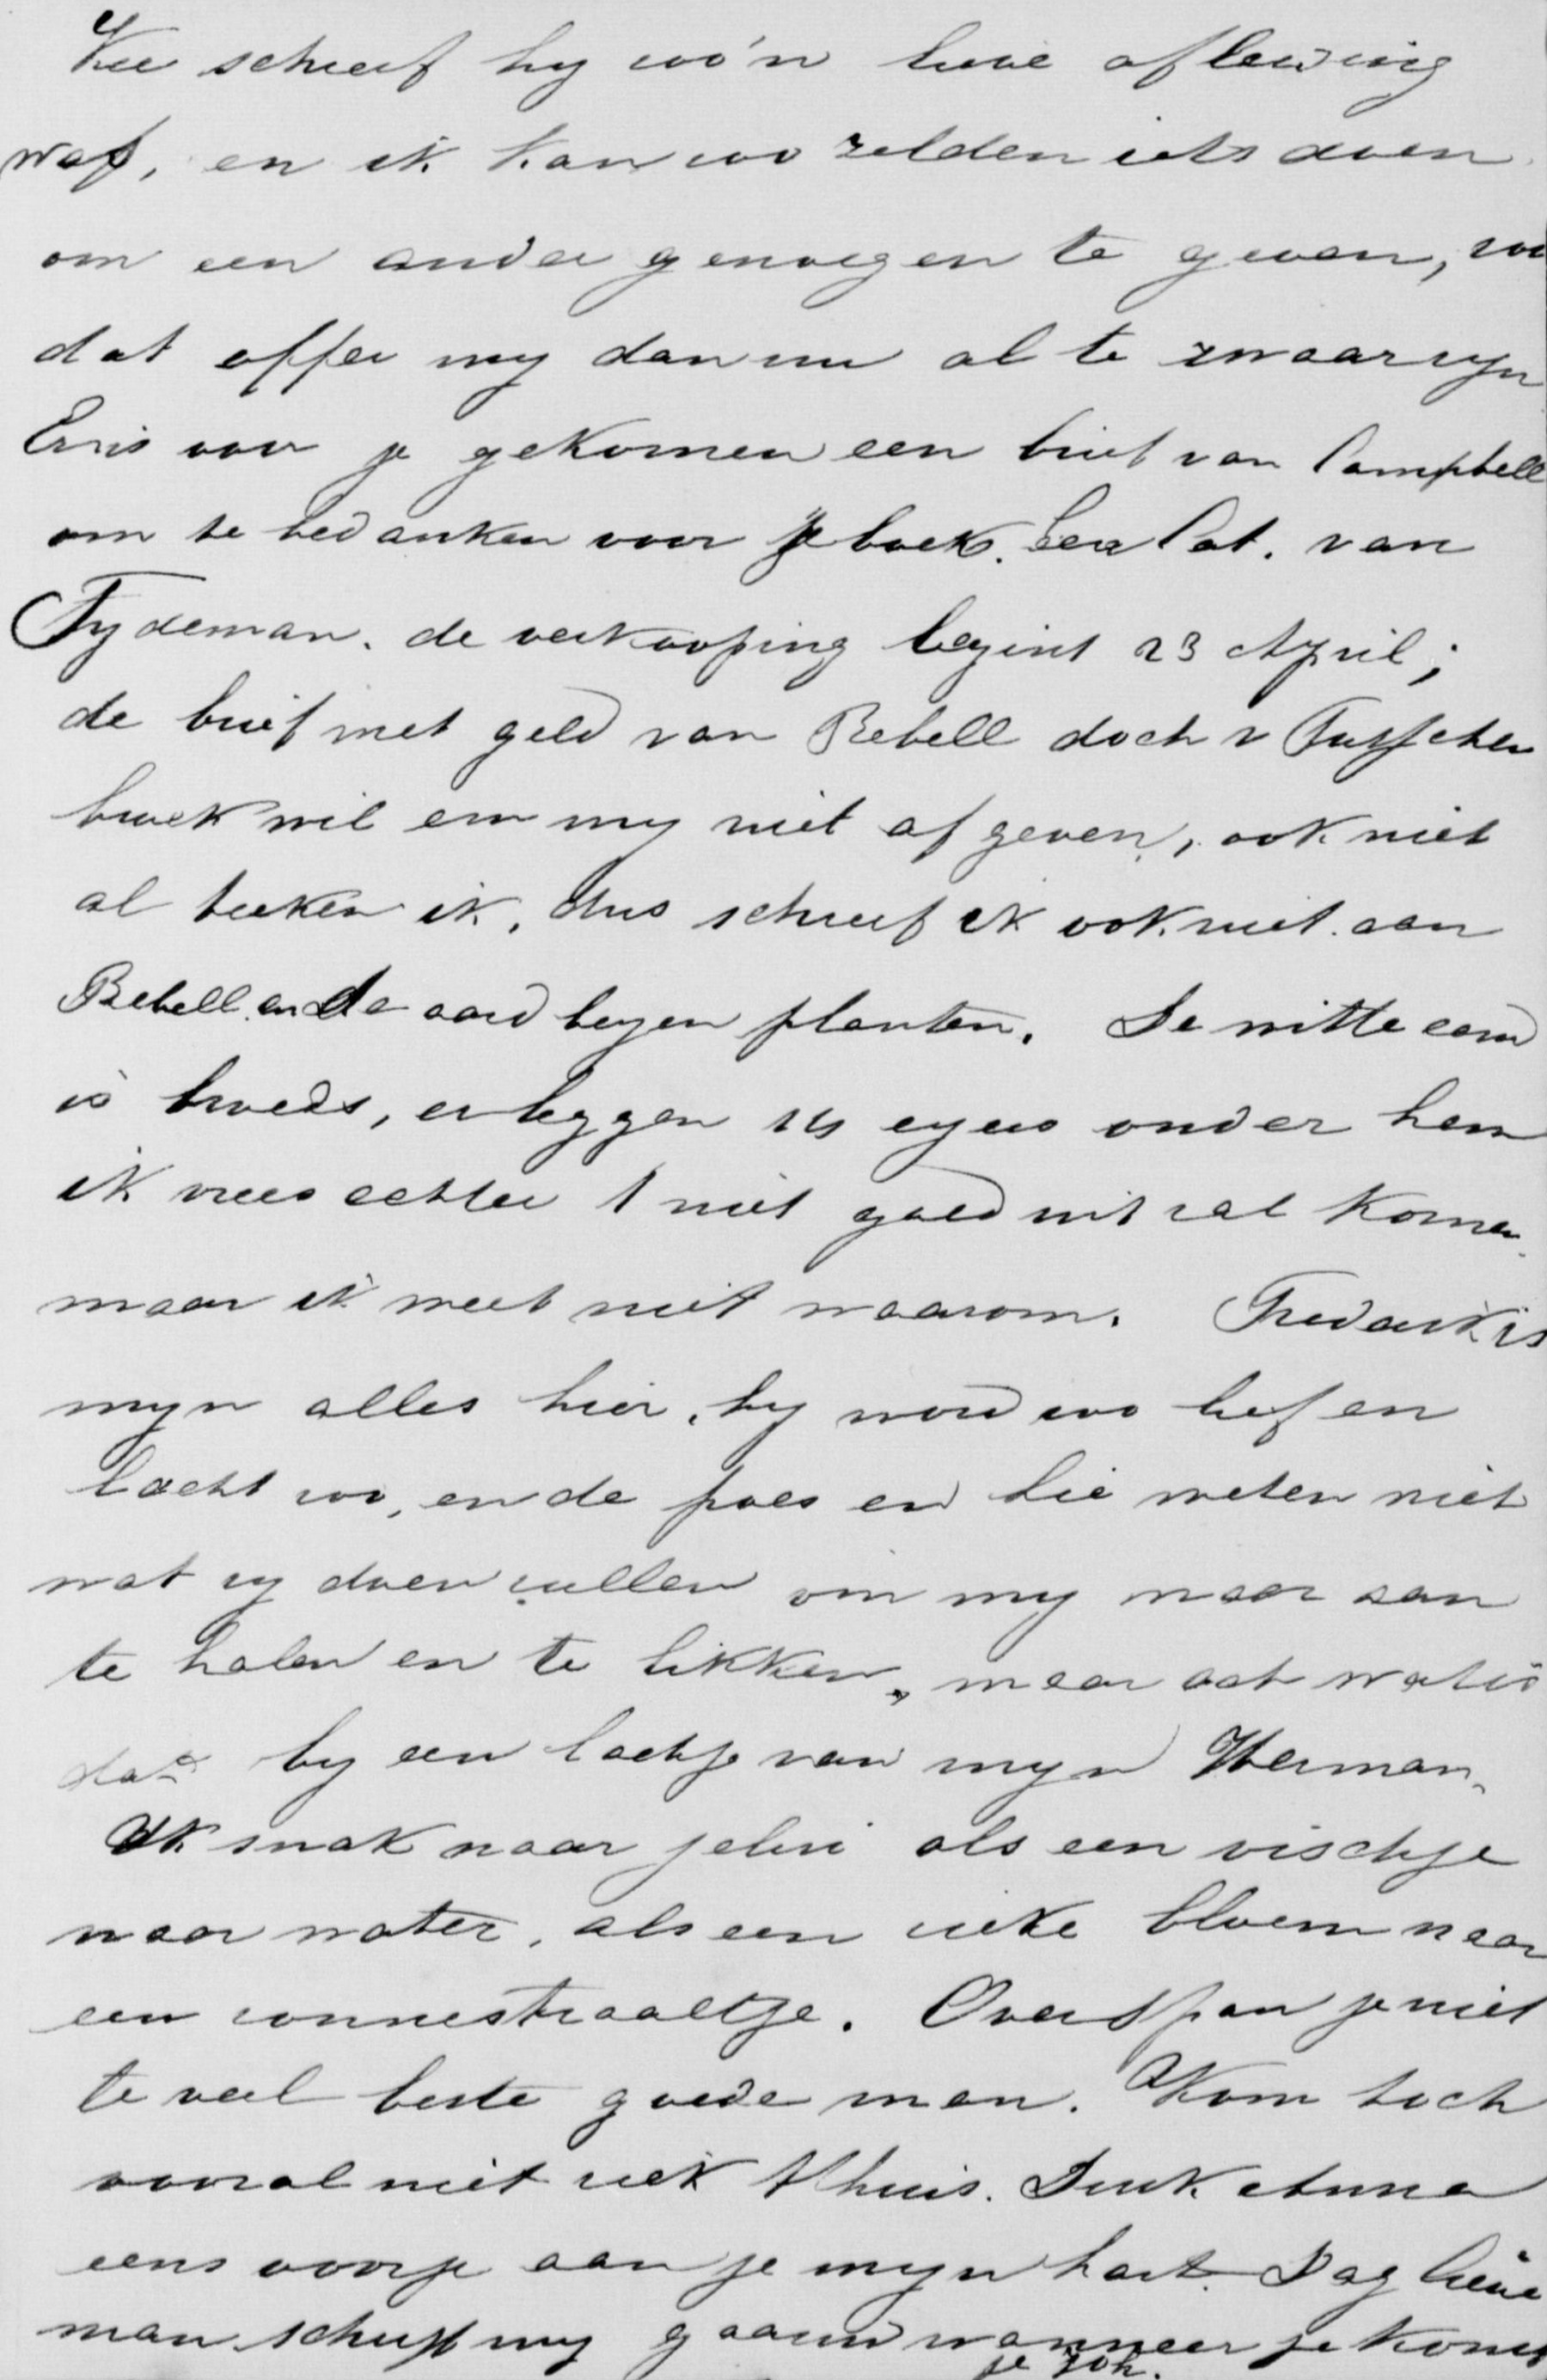 Kee schreef hy zoo'n lieve afleiding
was, en ik kan zoo zelden iets doen
om een ander genoegen te geven, zou
dat offer my dan nu al te zwaar zyn
Er is voor je gekomen een brief van Campbell
om te bedanken voor je boek. Een Cat. van
Tydeman. de verkooping begint 23 April;
de brief met geld van Rebell doch v Tusschen
broek wil em my niet afgeven, ook niet
al teeken ik, dus schreef ik ook niet aan
Rebell. en de aardbeyen planten. De witte eend
is broeds, er leggen eyers onder hem
ik vrees echter 't niet goed uit zal komen
maar ik weet niet waarom. Frederik is
myn alles hier, hy word zoo lief en
lacht zoo, en de poes en Lie weten niet
wat zy doen zullen om my maar aan
te halen en te likken, maar ach wat is
dat by een lachje van myn Herman.
Ik snak naar jelui als een vischje
naar water, als een zieke bloem naar
een zonnestraaltje. Overspan je niet
te veel beste goede man. Kom toch
vooral niet ziek t'huis. Druk Anna
eens voor je aan je myn hart. Dag lieve
man schryf my gaauw wanneer je komt
je Joh.